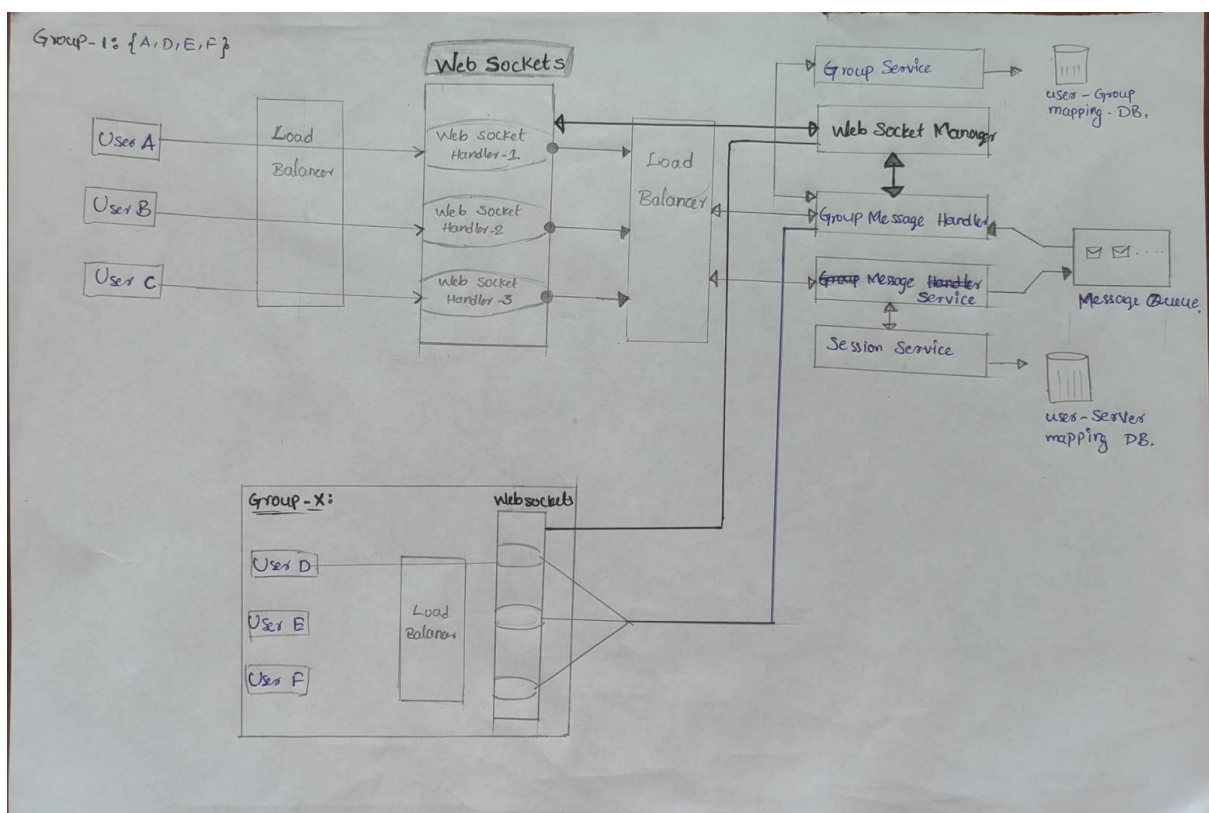 Group-1: {A,D,E,F}
Web Sockets
User A
User B
User C
Load
Balancer
Web socket
Handler-1
Web Socket
Handler-2
Web Socket
Handler-3
Load
Balancer
Group Service
user-Group
mapping-DB.
Web Socket Manager
Group Message Handler
Group Mesage Handler
Service
Message Queue.
Session Service
user-Server
mapping DB.
Group-X:
Websockets
User D
User E
User F
Load
Balancer